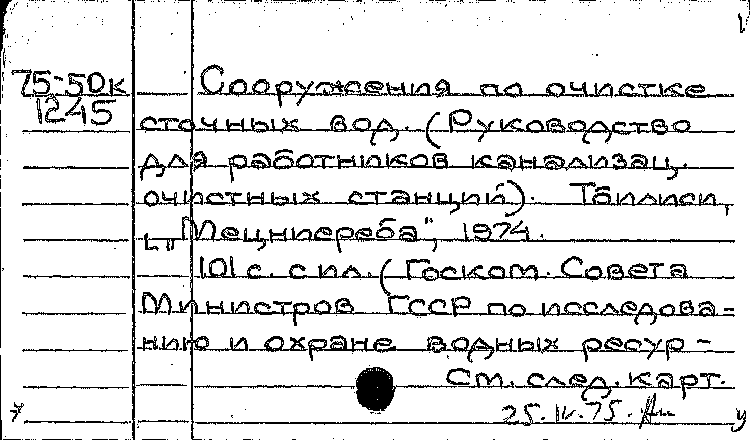 75-50к Сооружения по очистке
1245
сточных вод. (Руководство
для работников канализац.
очистных станций). Тбилиси,
"Мецниереба", 1974.
101 с. с ил. (Госком. Совета
Министров ГССР по исследова-
нию и охране водных ресур-
См. след. карт.
25.IV.75.